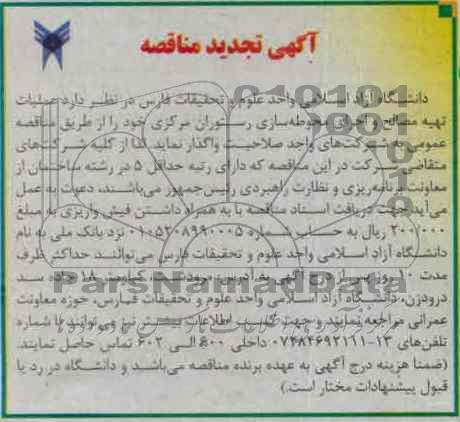 آگهی تجدید مناقصه
دانشگاه آزاد اسلامی واحد علوم و تحقیقات فارس در نظر دارد عملیات
تهیه مصالح و اجرای محوطه‌سازی رستوران مرکزی خود را از طریق مناقصه
عمومی به شرکت‌های واجد صلاحیت واگذار نماید. لذا از کلیه شرکت‌های
متقاضی شرکت در این مناقصه که دارای رتبه حداقل ۵ در رشته ساختمان از
معاونت برنامه‌ریزی و نظارت راهبردی رئیس‌جمهور می‌باشند، دعوت به عمل
می‌آید جهت دریافت اسناد مناقصه با به همراه داشتن فیش واریزی به مبلغ
۲۰۰/۰۰۰ ریال به حساب شماره ۰۱۰۵۲۰۸۹۹۰۰۰۵ نزد بانک ملی به نام
دانشگاه آزاد اسلامی واحد علوم و تحقیقات فارس می‌توانند حداکثر ظرف
مدت ۱۰ روز پس از درج آگهی به آدرس: مرودشت، کیلومتر ۱۸ جاده سد
درودزن، دانشگاه آزاد اسلامی واحد علوم و تحقیقات فارس، حوزه معاونت
عمرانی مراجعه نمایند و جهت کسب اطلاعات بیشتر نیز می‌توانند با شماره
تلفن‌های ۱۳-۰۷۲۸۴۶۹۲۱۱۱ داخلی ۶۰۰ الی ۶۰۲ تماس حاصل نمایند.
(ضمنا هزینه درج آگهی به عهده برنده مناقصه می‌باشد و دانشگاه در رد یا
قبول پیشنهادات مختار است.)
ParsNamadData